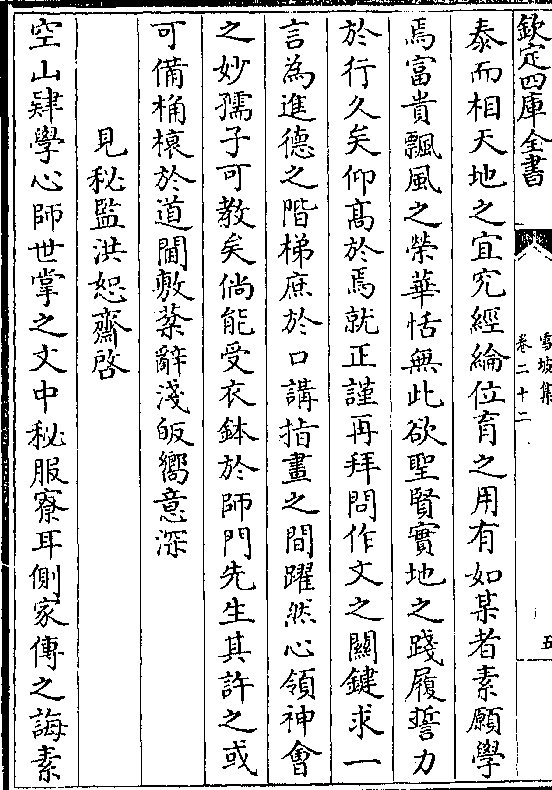 欽定四庫全書
雪坡集
卷二十二
五
泰而相天地之宜究經綸位育之用有如某者素願學
焉富貴飄風之榮華恬無此欲聖賢實地之踐履誓力
於行久矣仰髙於焉就正謹再拜問作文之關鍵求一
言為進德之階梯庶於口講指畫之間躍然心領神會
之妙孺子可教矣倘能受衣鉢於師門先生其許之或
可備桷榱於道閫敷棻辭淺皈嚮意深
見秘監洪恕齋啓
空山肄學心師世掌之文中秘服寮耳側家傳之誨素